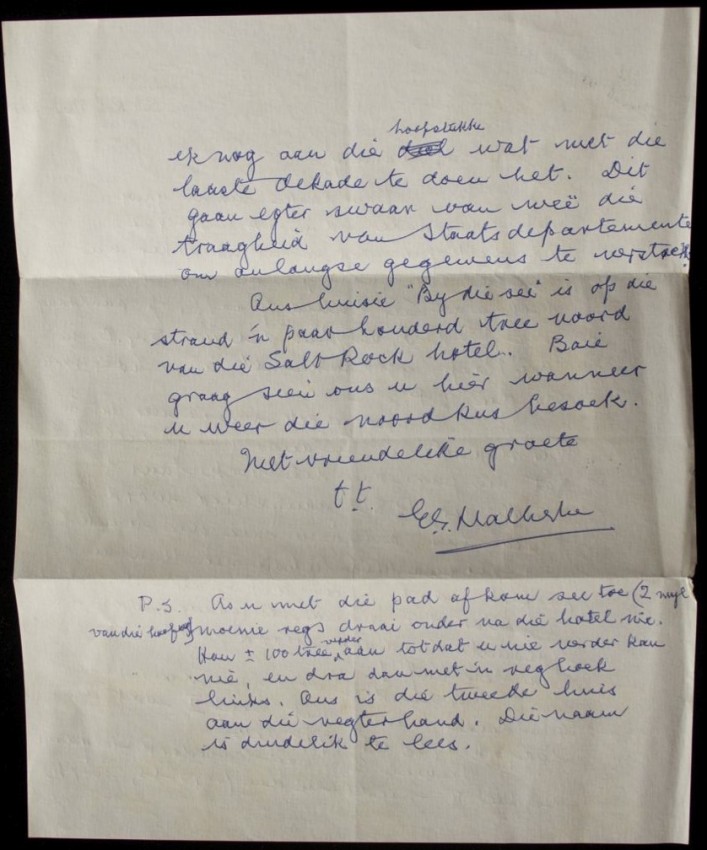 hoofstukke
ek nog aan die wat met die
laaste dekade te doen het. Dit
gaan egter swaar van weë die
traagheid van Staatsdepartemente
om onlangse gegewens te verstrek.
Ons huisie "By die see" is op die
strand 'n paar honderd tree noord
van die Salt Rock hotel. Baie
graag sien ons u hier wanneer
u weer die noordkus besoek.
Met vriendelike groete
t.t.
P.S. As u met die pad af kom see toe (2 myl
van die moenie regs draai onder na die hotel nie.
Hou ± 100 tree verder aan totdat u nie verder kan
nie, en dra dan met 'n reghoek
links. Ons is die tweede huis
aan die regterhand. Die naam
is duidelik te lees.